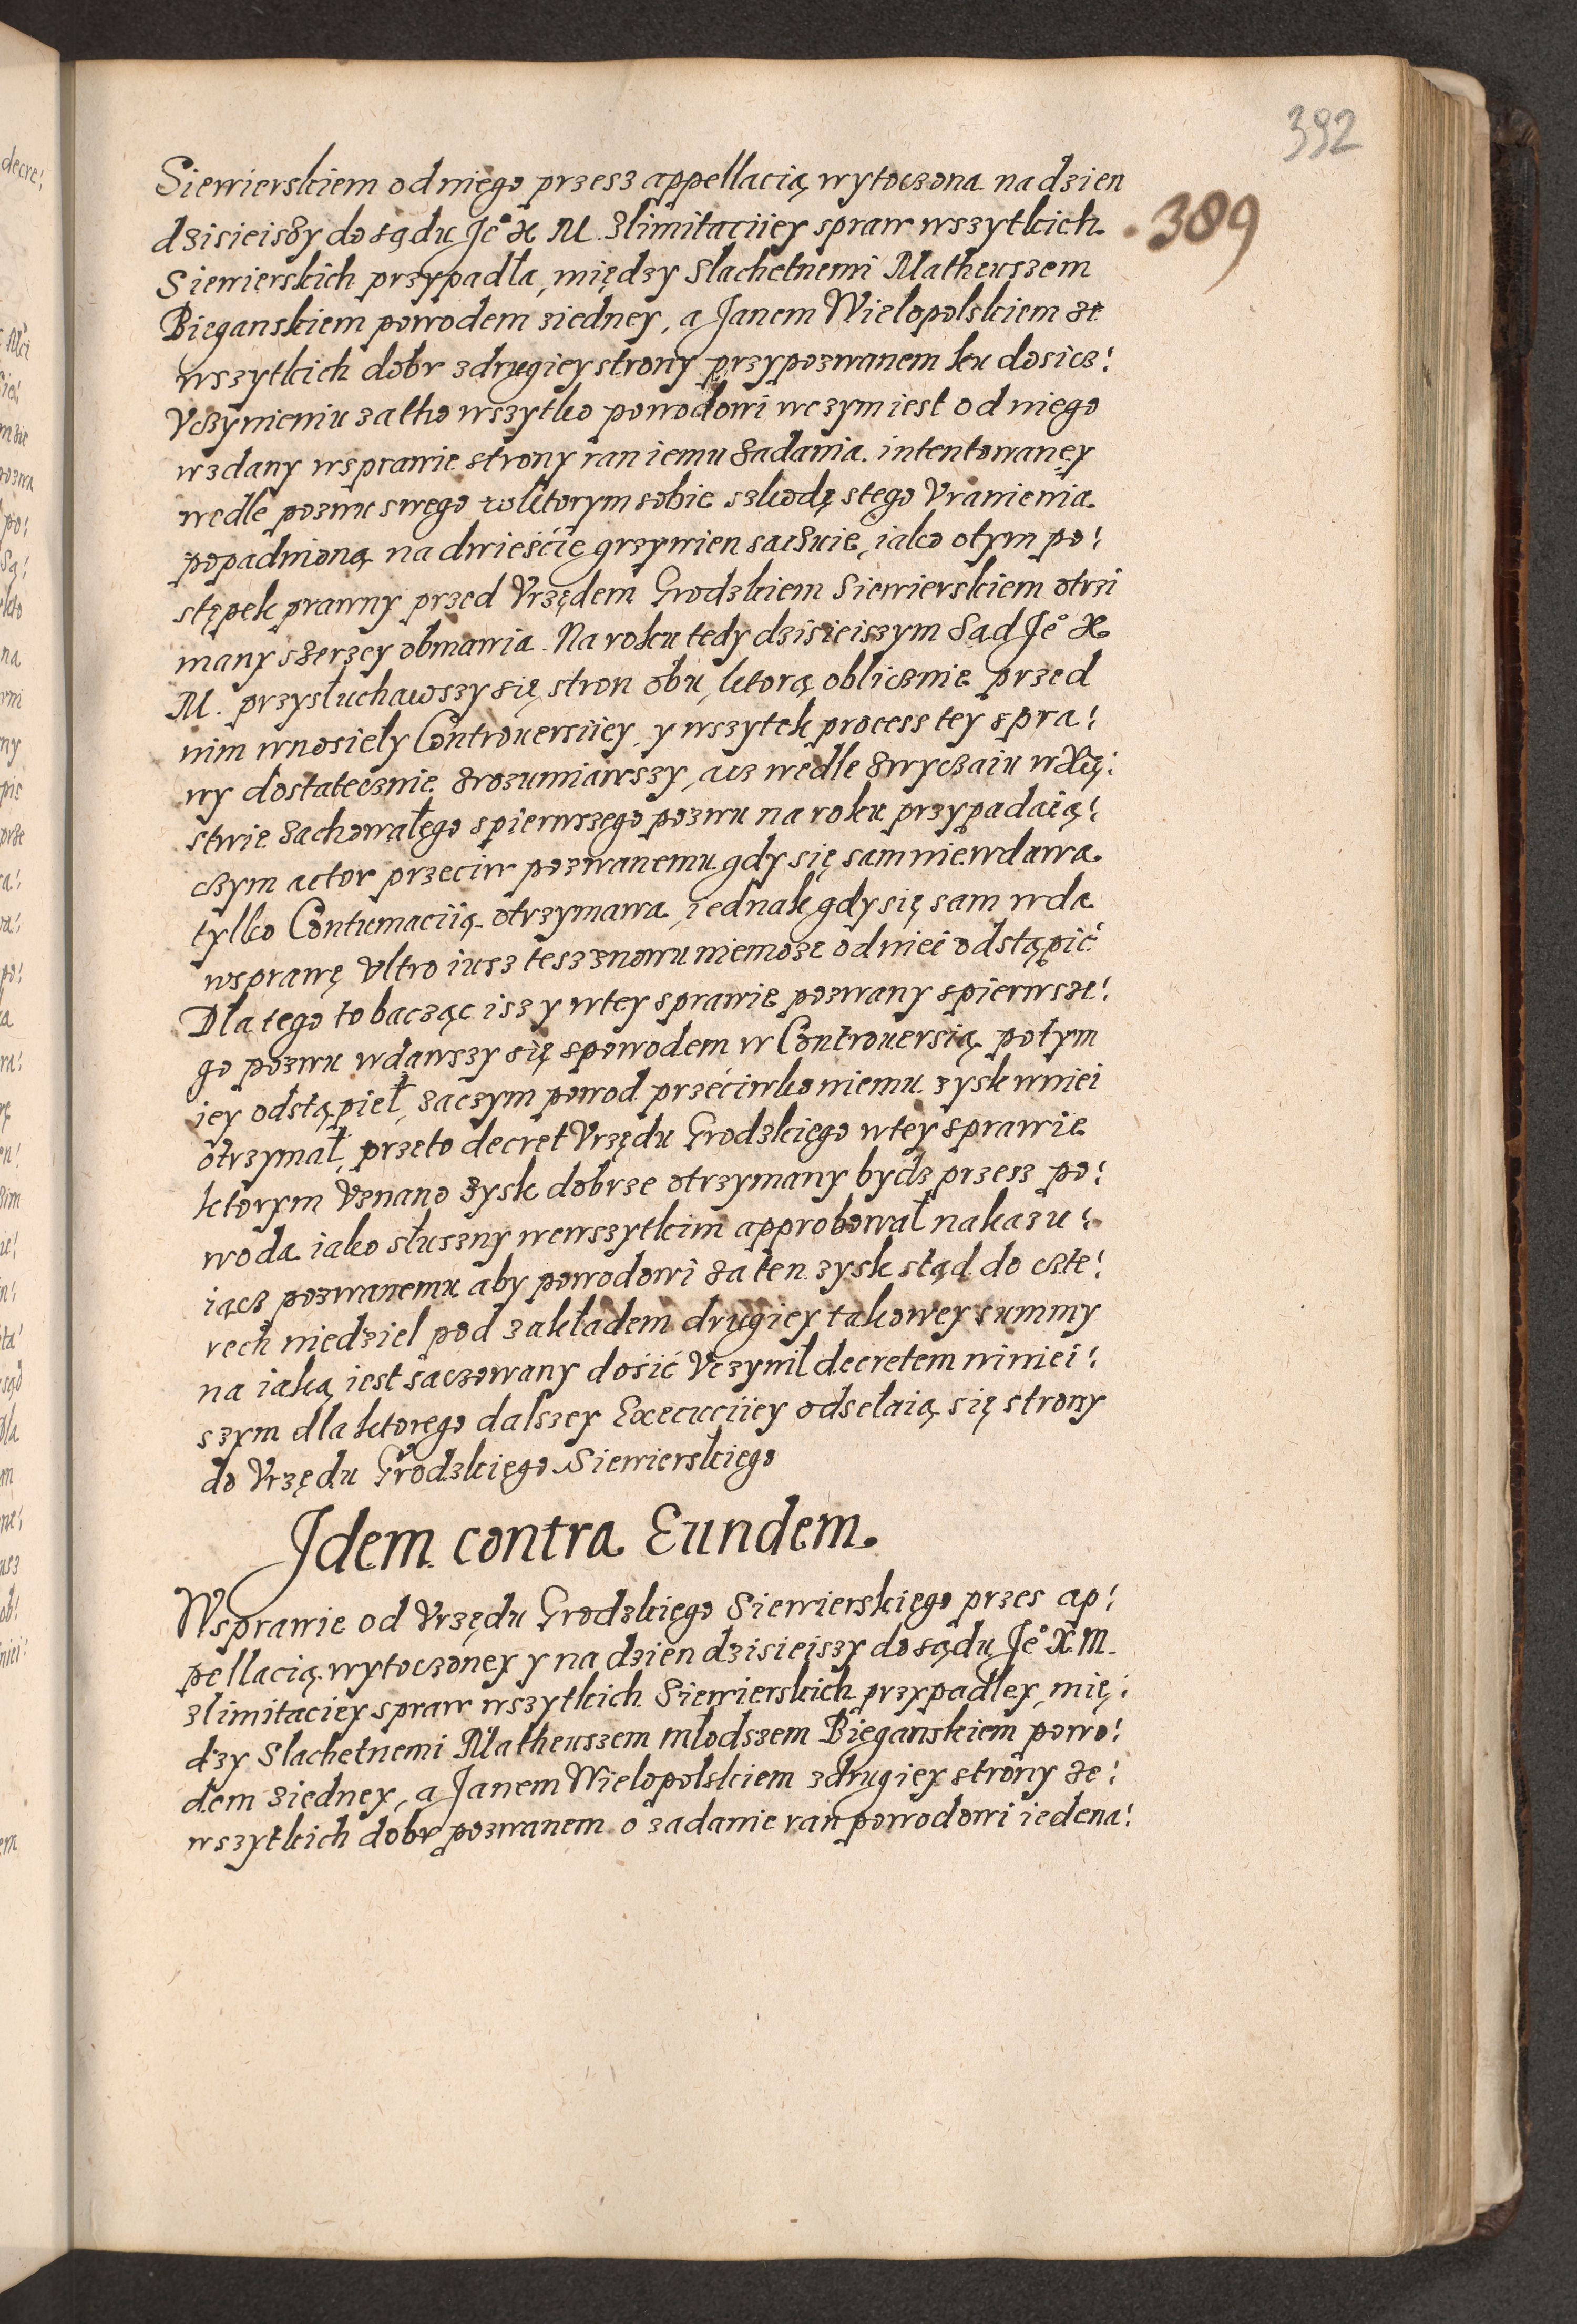 392
Siewierskiem od niego przesz appellacią wytoczona na dzien
389
dzisieiszy do sądu Je° X M. Zlimitaciiey spraw wszytkich
Siewierskich przypadła, między Slachetnemi Matheuszem
Bieganskiem powodem ziedney, a Janem Wielopolskiem ze
wszytkich dobr zdrugiey strony przypozwanem ku dosicz!
Vczynieniu zatho wszytko powodowi wczym iest od niego
wzdany wsprawie strony ran iemu zadania intentowaney
wedle pozwu swego w ktorym sobie szkodę stego Vranienia
popadnioną na dwieście grzywien sacuie, iako otym po!
stępek prawny przed Vrzędem Grodzkiem Siewierskiem otrzi
many szerzey obmawia. Na roku tedy dzisieiszym Sąd Je° X
M. przysłuchawszy się stron obu, ktorą oblicznie przed
nim wnosiely Controuersiiey, y wszytek process tey spra!
wy dostatecznie zrozumiawszy, acz wedle zwyczaiu wXię!
stwie zachowałego spierwszego pozwu na roku przypadaią!
czym actor przeciw pozwanemu gdy się sam niewdawa
tylko Contumaciią otrzymawa, iednak gdy się sam wda
wsprawę Vltro iusz tesz znowu niemoze od niei odstąpić
Dla tego to bacząc isz y wtey sprawie pozwany spierwsze!
go pozwu wdawszy się spowodem w Controuersią potym
iey odstąpieł, zaczym powod przećiwko niemu zysk wniei
otrzymał, przeto decret Vrzędu Grodzkiego wtey sprawie
ktorym Vznano zysk dobrze otrzymany bydz przesz po!
woda iako słuszny wewszytkim approbował nakazu!
iącz pozwanemu aby powodowi za ten zysk stąd do czte!
rech niedziel pod zakładem drugiey takowey summy
na iaką iest saczowany dośić Vczynil decretem niniei!
szym dla ktorego dalszey Execuciiey odsełaią się strony
do Vrzędu Grodzkiego Siewierskiego
Jdem contra Eundem.
Wsprawie od Vrzędu Grodzkiego Siewierskiego przes ap!
pellacią wytoczoney y na dzien dzisieiszy do sądu Je° X M.
zlimitaciey spraw wszytkich Siewierskich przypadłey, mię!
dzy Slachetnemi Matheuszem młodszem Bieganskiem powo!
dem ziedney, a Janem Wielopolskiem zdrugiey strony ze!
wszytkich dobr pozwanem o zadanie ran powodowi iedena!